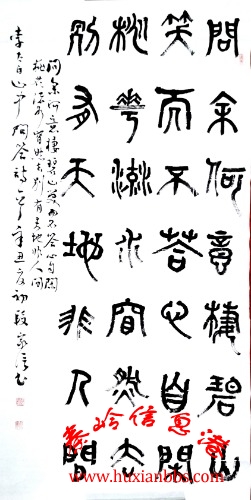 問余何意棲碧山
笑而不答心自閑
桃華流水窅然去
別有天地非人間
问余何意棲碧山笑而不答心自閑
桃花流水窅然去别有天地非人间
李太白山中问答诗一 辛丑夏初段家信书
www.huxianbbs.com